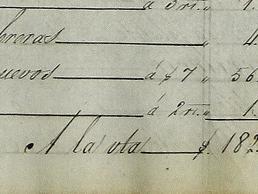 á 3 rs. " 1.
breras " 4.
uevos á $7 " 56
á 2 rs. " 1.
A la vta $. 182